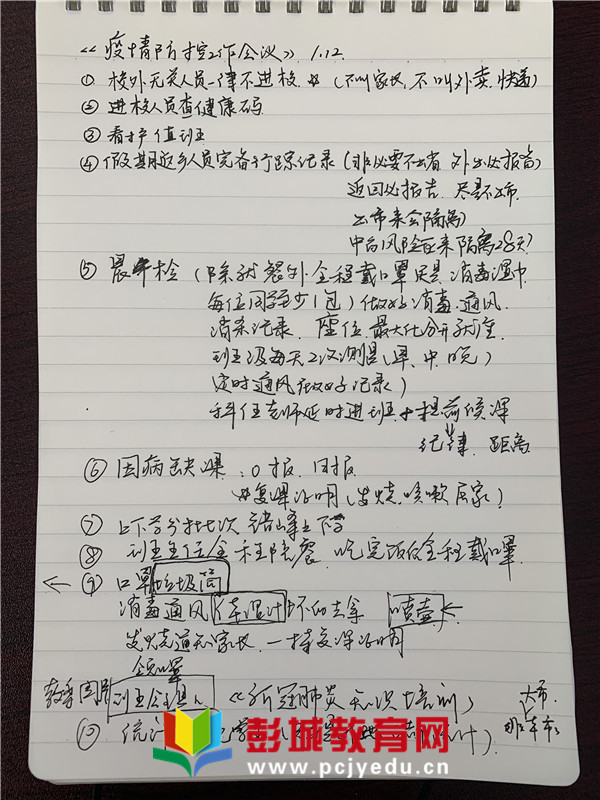 《疫情防控工作会议》 1.12
① 校外无关人员一律不进校 (不叫家长,不叫外卖.快递)
② 进校人员查健康码
③ 看护值班
④ 假期返乡人员完备行踪记录 (非必要不出省 外出必报备
返回必报告. 尽量不出市
出市来会隔离)
中高风险区来隔离28天)
⑤ 晨午检 (除就餐外.全程戴口罩 消毒湿巾
每位同学至少1包) 做好消毒.通风
消杀记录. 座位.最大化分开
班级每天2次测量(早、中、晚)
定时通风做好记录)
科任老师延时进班 + 提前候课
纪律. 距离
⑥ 因病缺课、0报.日报
复课证明(发烧.咳嗽居家)
⑦ 上下学分批次 错峰上下学
⑧ 班主任全程陪餐. 吃完饭后全程戴口罩
⑨ 口罩垃圾筒
消毒通风 体温计 坏的去拿 喷壶
发烧通知家长. 一持复课证明
《新冠肺炎知识培训》
⑩ 统计
彭城教育网
www.pcjyedu.cn